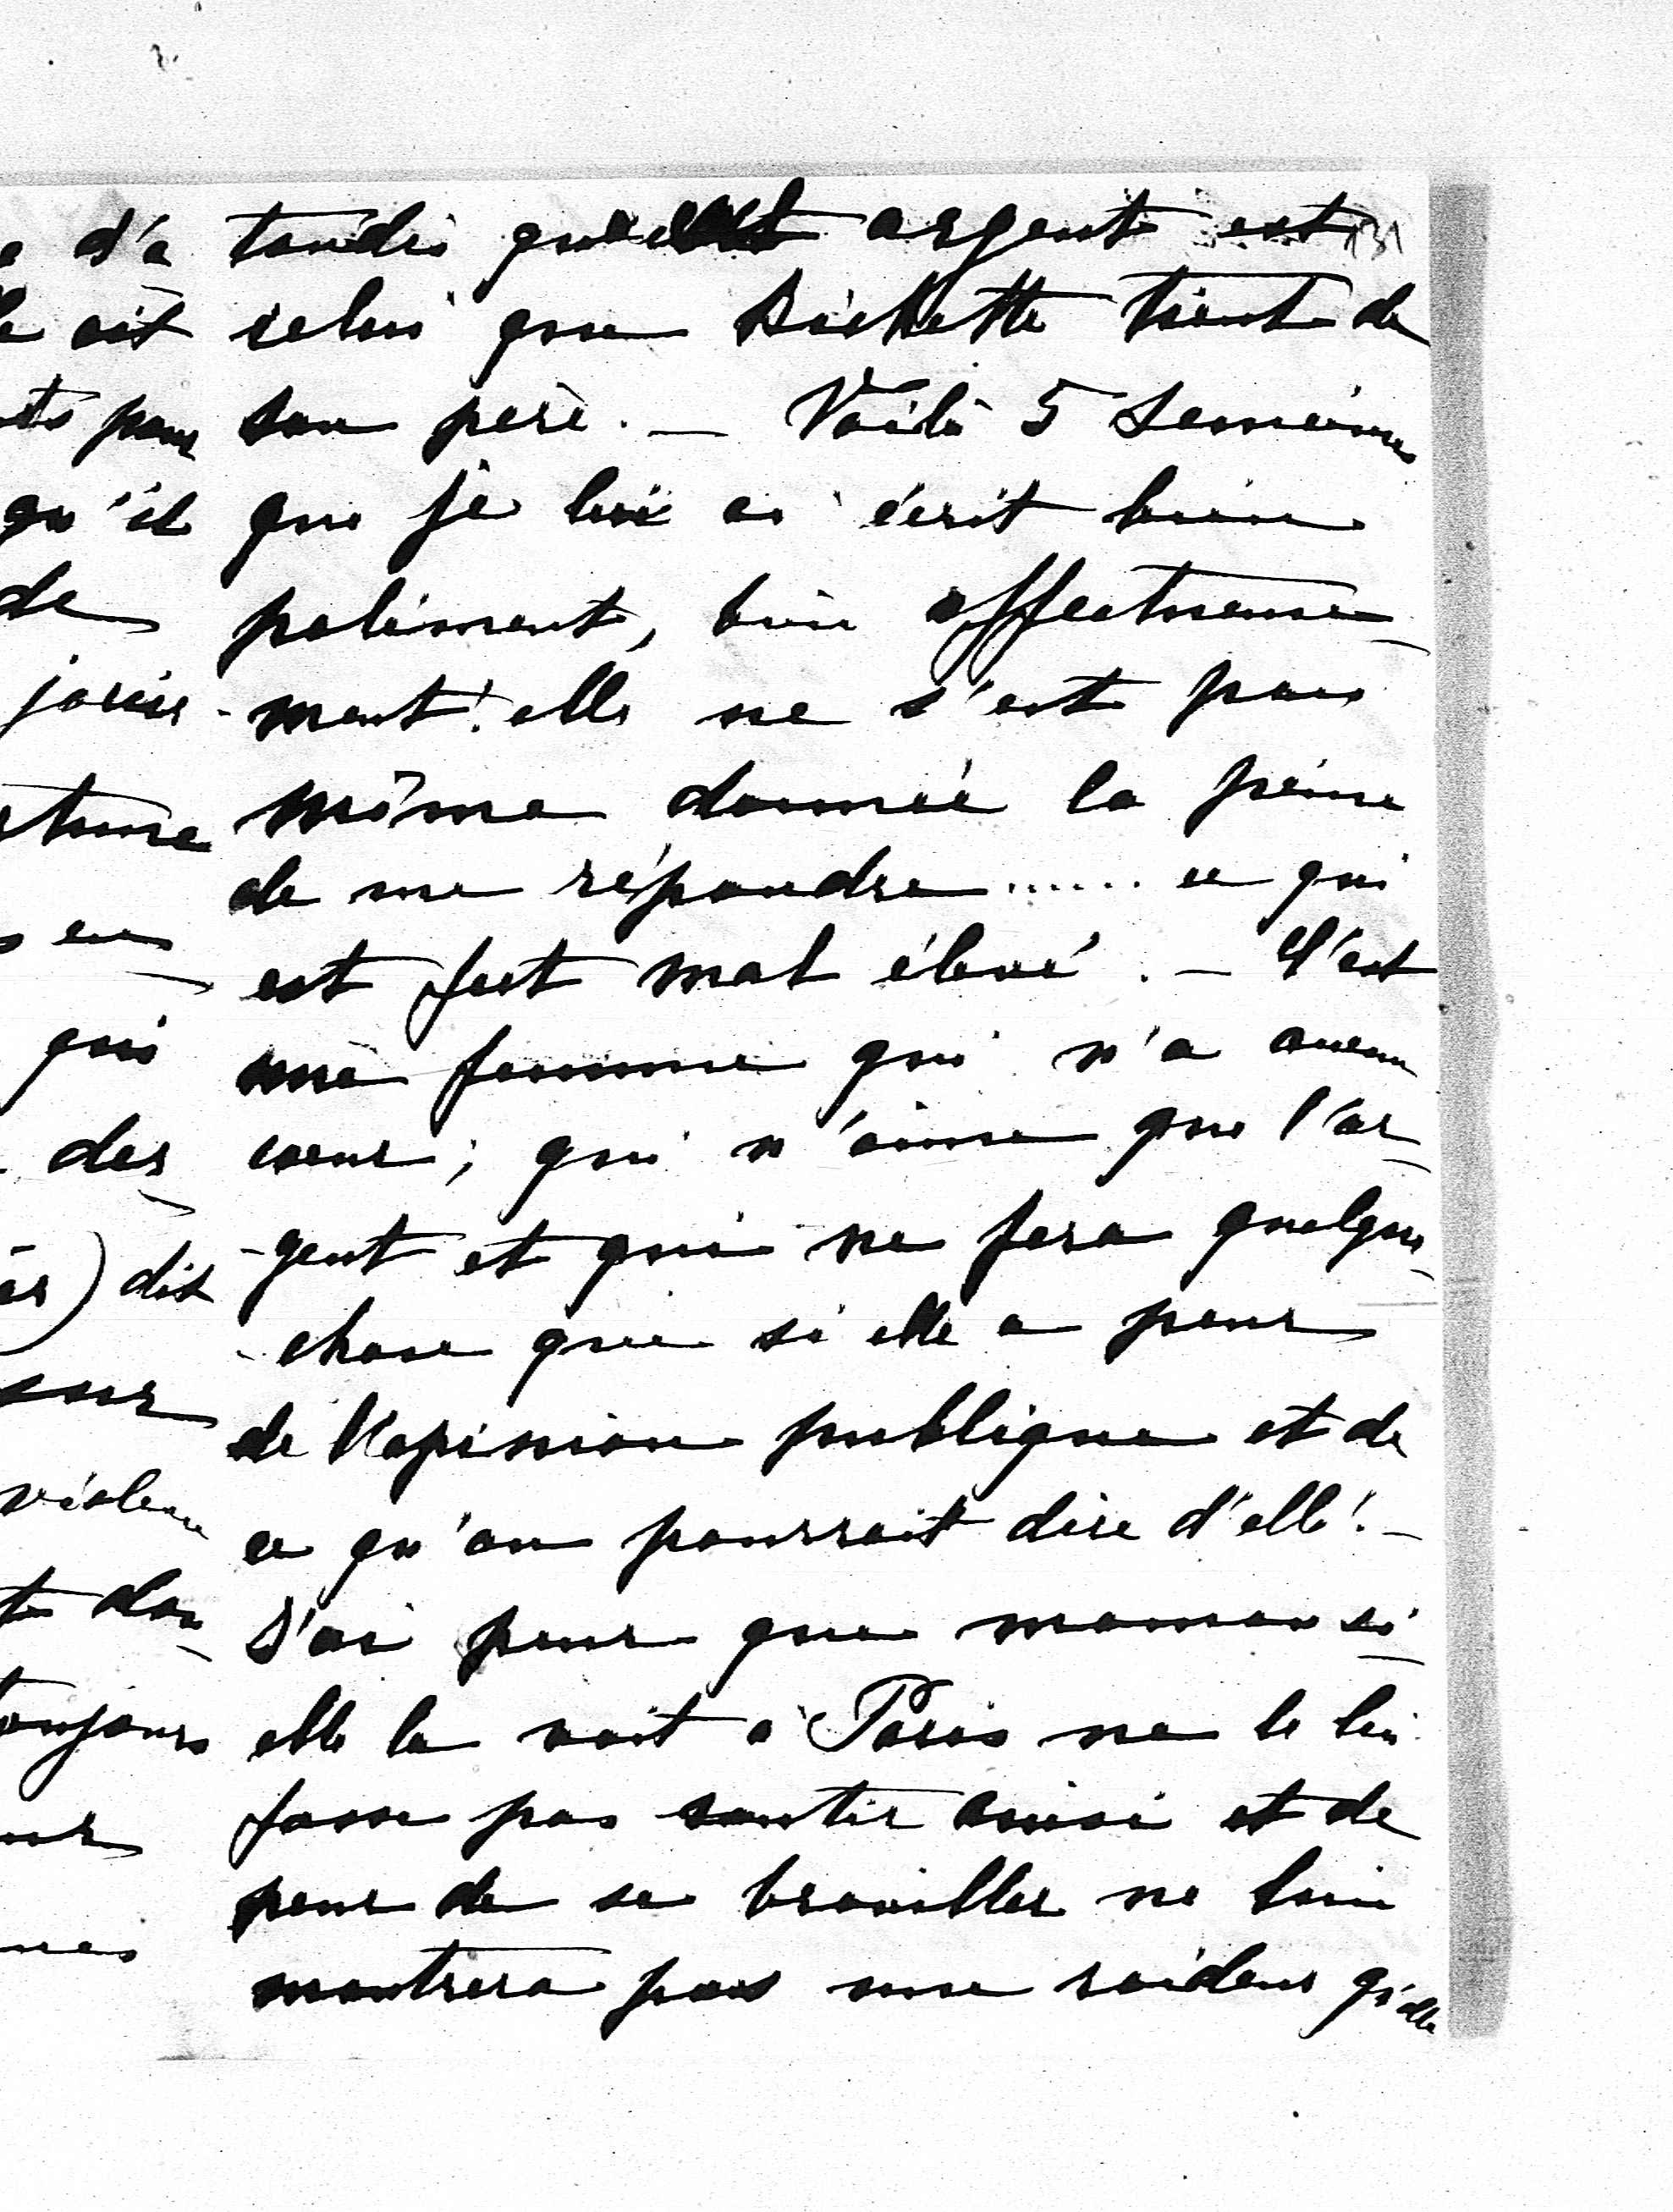 tandis que cet argent est
celui que Bichette tient de
son père. — Voilà 5 semaines
que je lui ai écrit bien
poliment, bien affectueuse-
-ment! elle ne s'est pas
même donnée la peine
de me répondre ...... ce qui
est fort mal élevé. — C'est
une femme qui n'a aucun
cœur; qui n'aime que l'ar-
-gent et qui ne fera quelque-
-chose que si elle a peur
de l'opinion publique et de
ce qu'on pourrait dire d'elle! —
J'ai peur que maman si
elle la voit à Paris ne le lui
fasse pas sentir aussi et de
peur de se brouiller ne lui
montrera pas une raideur qu'elle
d'a
ait
pour
qu'il
de
jouir-
en
qui
des-
) dit
violence
don-
toujours